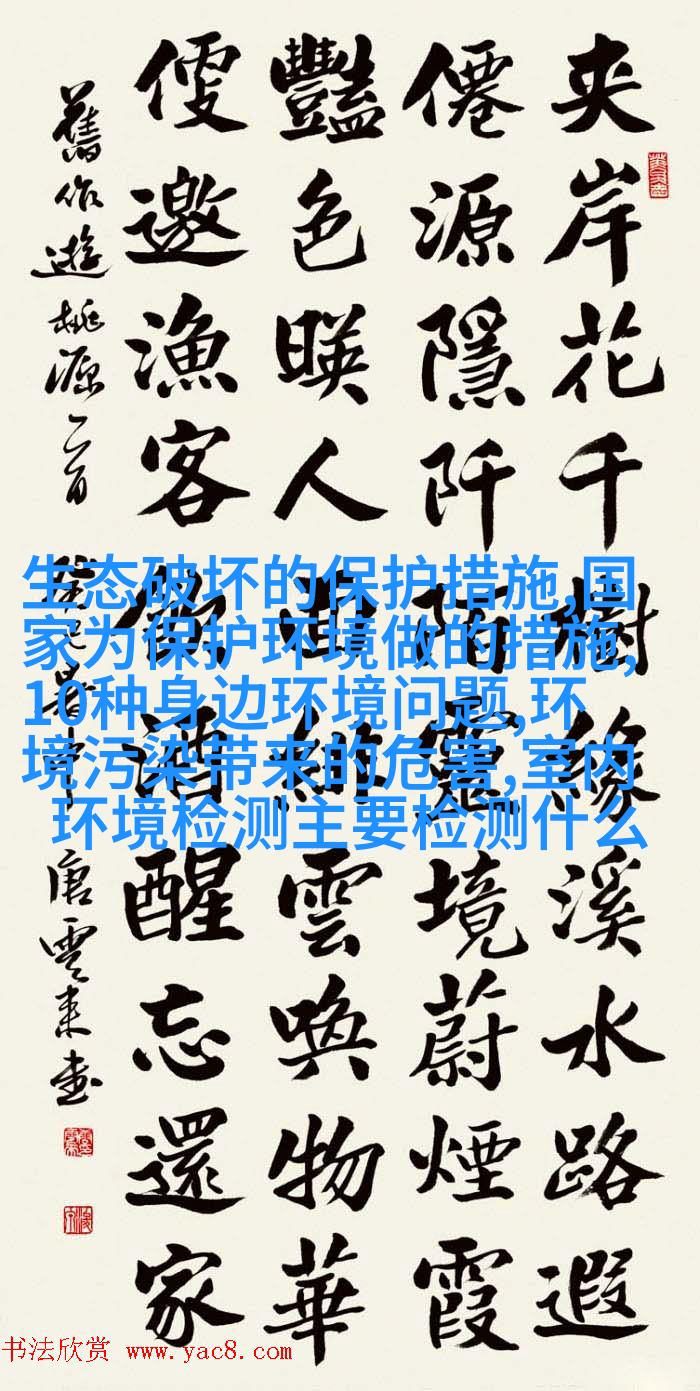 夾岸花千樹緣溪水路遐
僊源隱阡陌靈境蔚煙霞
豔色暎人雲喚物華
便邀漁客酒醒忘還家
舊作遊桃源二首
唐雲來書
生态破坏的保护措施,国
家为保护环境做的措施,
10种身边环境问题,环
境污染带来的危害,室内
环境检测主要检测什么
书法欣赏 www.yac8.com